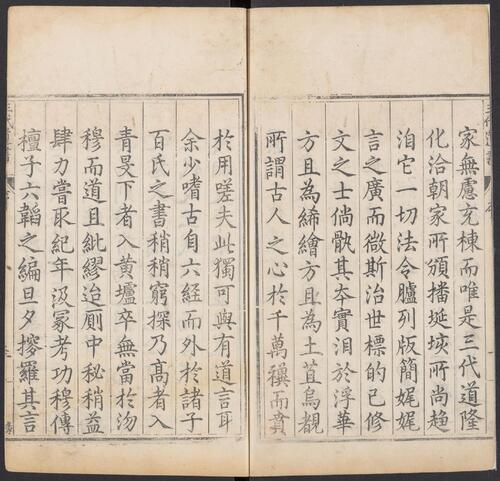 家無慮充棟而唯是三代道隆
化洽朝家所頒播埏所尚趍
洎它一切法令臚列版簡娓娓
言之廣而微斯治世標的已修
文之士倘骩其夲實汨於浮華
方且為絺繪方且為土苴烏覩
所謂古人之心於千萬禩而賁
於用嗟夫此獨可與有道言耳
余少嗜古自六經而外於諸子
百氏之書稍稍窮探乃髙者入
青旻下者入黃壚卒無當於沕
穆而道且紕繆迨厠中秘稍益
肆力嘗取紀年汲冡考功穆傳
檀子六韜之編旦夕摉羅其言